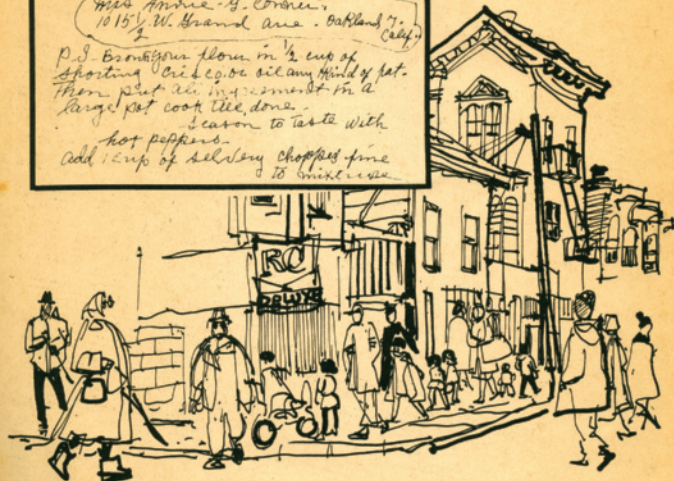 Mrs
1015 1/2 W. Grand ave. Oakland 7.
Calif.
P.S. Brown your flour in 1/2 cup of
shorting crisco or oil any kind of fat.
Then put all in a
large pot cook till done.
season to taste with
hot peppers.
add 1 cup of selvery chopped fine
to mixture
RC